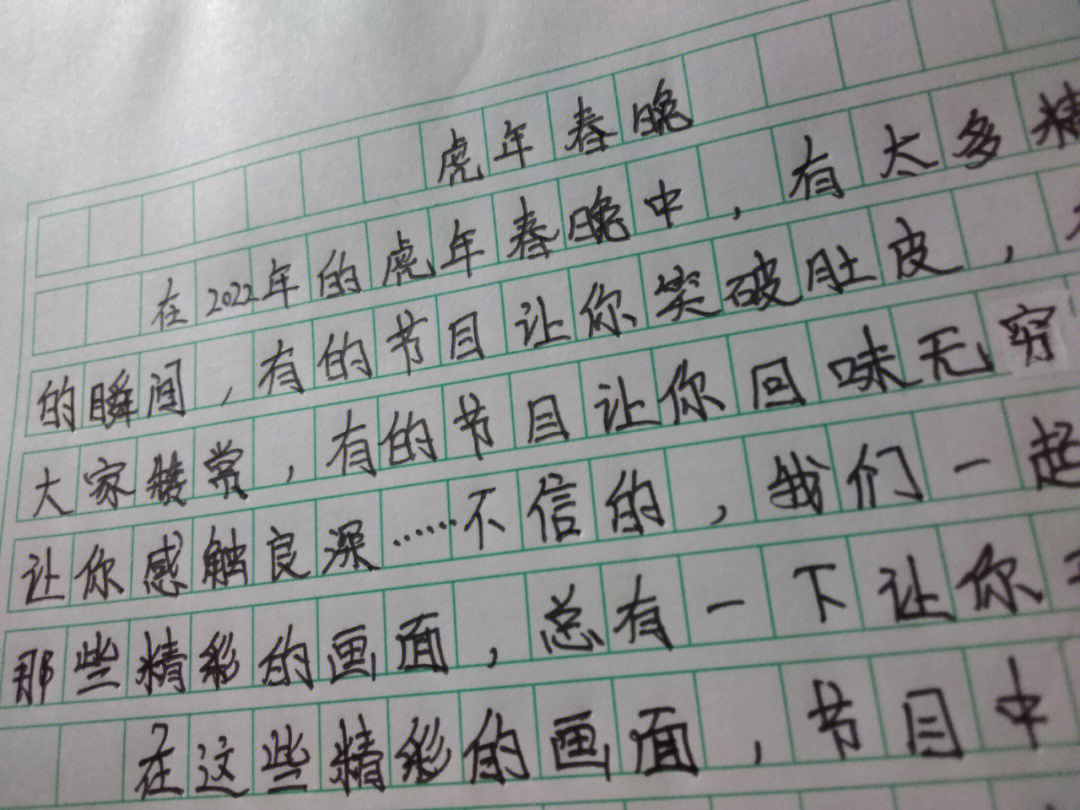 虎年春晚
在2022年的虎年春晚中，有太多精
的瞬间，有的节目让你笑破肚皮，
大家赞赏，有的节目让你回味无穷
让你感触良深……不信的，我们一起
那些精彩的画面，总有一下让你
在这些精彩的画面，节目中